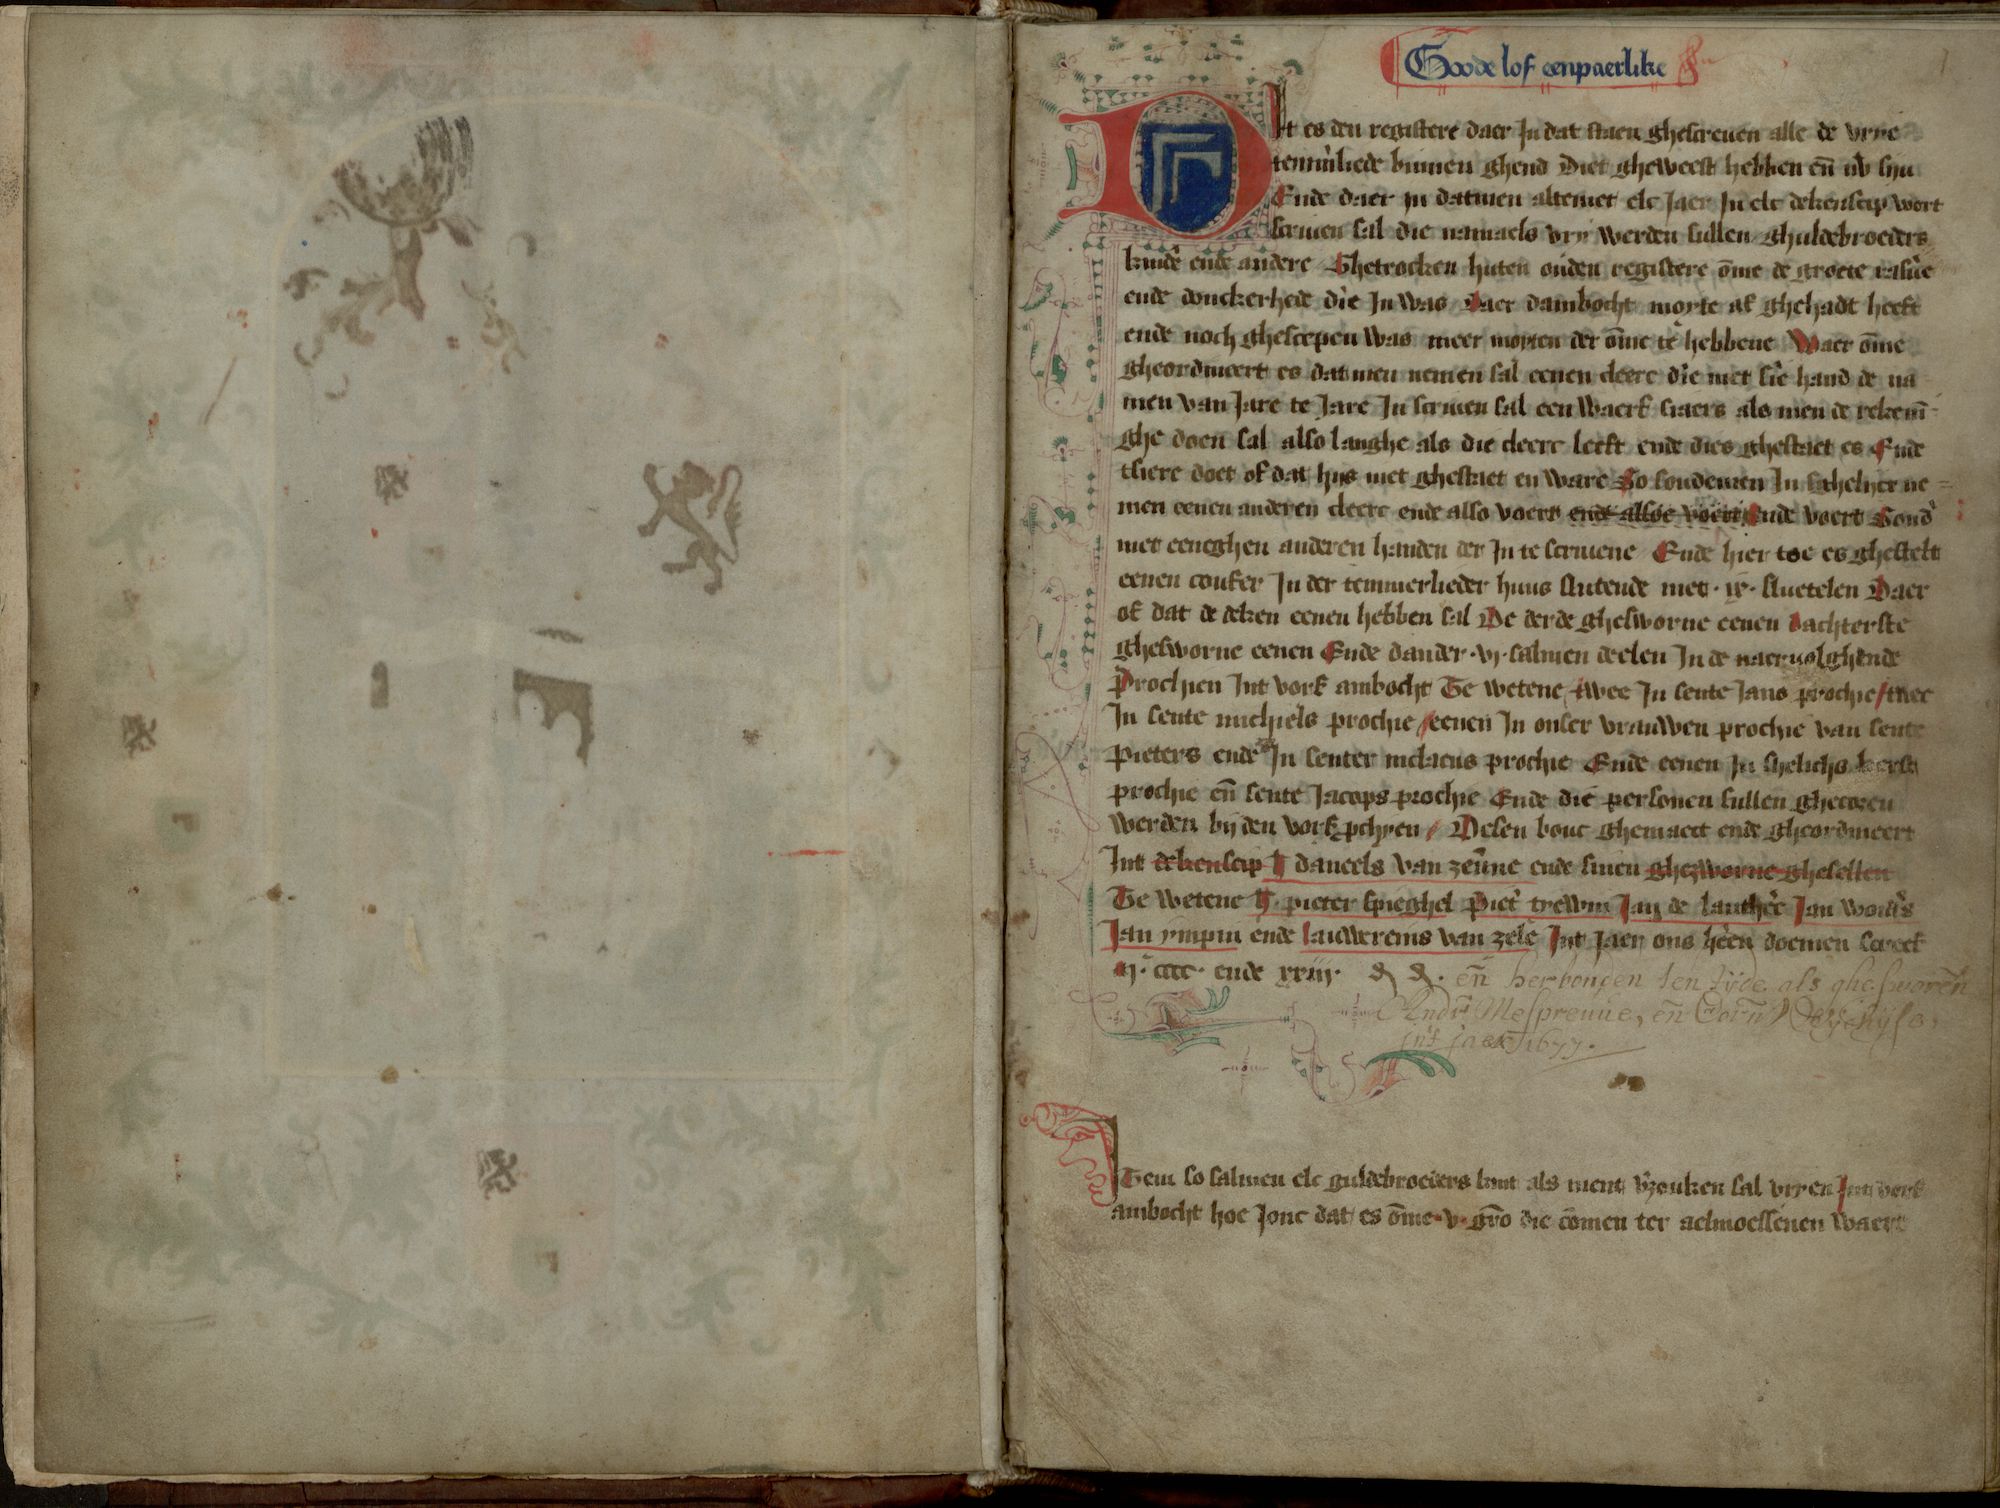 Goode lof eenpaerlike
Dit es den registere daer in dat staen ghescreven alle de vrye
temmerliede binnen ghend Diet gheweest hebben en̄ nv̄ sijn
Ende daer in datmen altemet elc Jaer In elc dekenscip vort
scriven sal die namaels vry werden sullen ghuldebroeders
kindr̄ ende andere Ghetrocken huten ouden registere om̄e de groete
ende donckerhede die In was Daer dambocht moyte af ghehadt heeft
ende noch ghescepen was meer moyten der om̄e te hebbene Waer om̄e
gheordineert es dat men nemen sal eenen cleerc die met sire hand de na
men van Jare te Jare In scriven sal een waerf siaers als men de rekenī
ghe doen sal also langhe als die cleerc leeft ende dies ghestaet es Ende
doet of dat hijs niet ghestaet en ware So soudemen In sghelijcx ne
men eenen anderen cleerc ende also voert ende alsoe voert Ende voert Sond̄
met eeneghen anderen handen der In te scrivene Ende hier toe es ghestelt
eenen coufer In der temmerlieder huus slutende met · ix · sluetelen Daer
of dat de deken eenen hebben sal De derde ghesworne eenen dachterste
ghesworne eenen Ende dander · vj · salmen deelen In de naervolghende
Prochien Int vors ambocht Te wetene twee In sente Jans prochie / twee
In sente michiels prochie / eenen In onser vrauwen prochie van sente
Pieters ende In senter niclaeus prochie Ende eenen In shelichs kerst
prochie en̄ sente Jacops prochie Ende die personen sullen ghecoren
werden bij den vors prchyen / Desen bouc ghemaect ende gheordineert
Int dekenscip daneels van zeūne ende sinen ghezworne ghesellen
Te wetene pieter spieghel Piet̄ trewin Jan de Jan
Jan ympin ende lauwereins van zele Int Jaer ons heēn doemen screef
M · cccc · ende xxiij · en̄ herbonden ten tijde als ghesworen̄
Andr̄ Mespreuue, en̄ Corn̄
int jaer 1677.
Item so salmen elc guldebroeders kint als ment vzouken sal vryen Int vors
ambocht hoe Jonc dat es om̄e · v · gr̄o die comen ter aelmoessenen waert